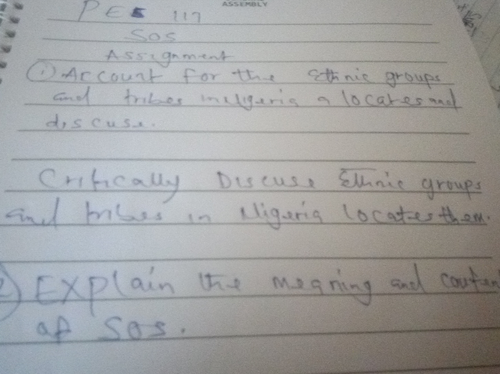 ASSEMBLY
PES 117
SOS
Assignment
(1) Account for the Ethnic groups
and tribes in Nigeria a locates and
discuse.
Critically Discuse Ethnic groups
and tribes in Nigeria locates them.
2) Explain the meaning and conten
of SOS.